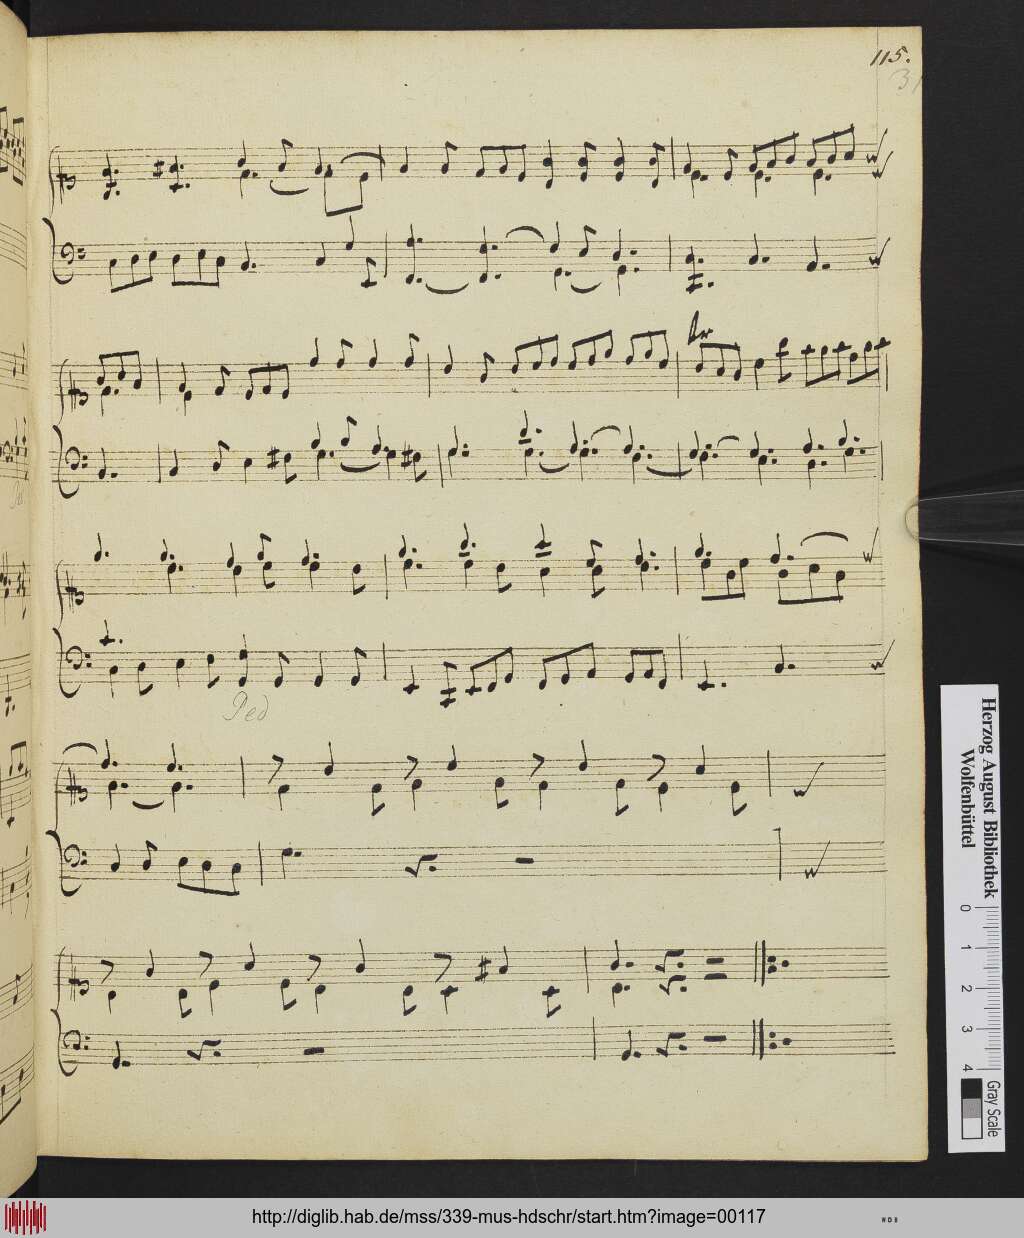 115.
31
tr
Ped
Herzog August Bibliothek
Wolfenbüttel
0 1 2 3 4
Gray Scale
http://diglib.hab.de/mss/339-mus-hdschr/start.htm?image=00117